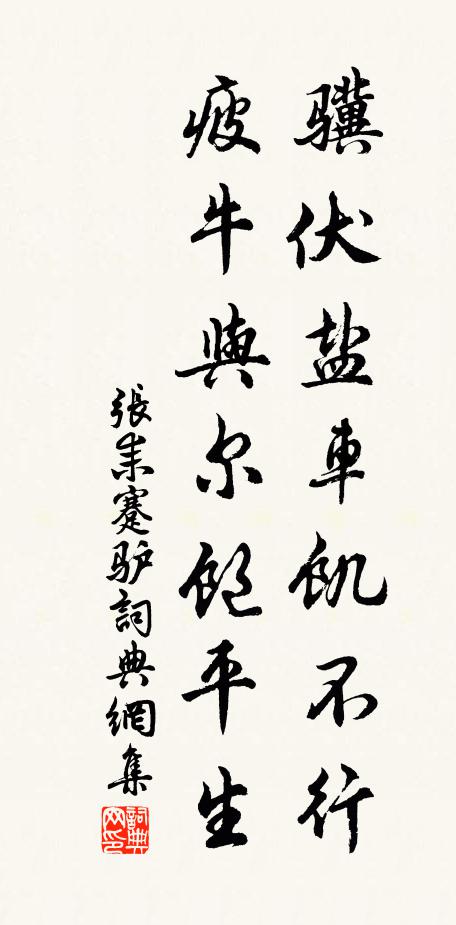 骥伏盐車飢不行
疲牛與尔飽平生
張耒蹇驴詞典網集
詞典网印